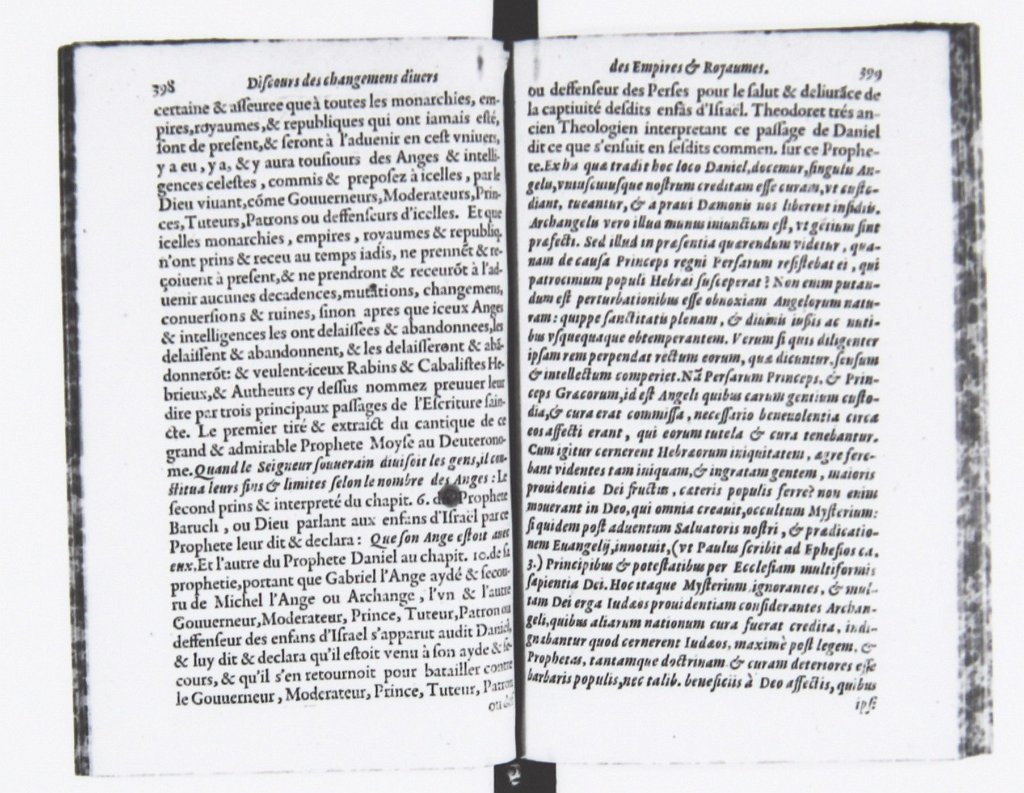 398 Discours des changemens diuers
certaine & asseuree que à toutes les monarchies, em-
pires, royaumes, & republiques qui ont iamais esté,
sont de present, & seront à l'aduenir en cest vniuers,
y a eu, y a, & y aura tousiours des Anges & intelli-
gences celestes, commis & preposez à icelles, par le
Dieu viuant, cõme Gouuerneurs, Moderateurs, Prin-
ces, Tuteurs, Patrons ou deffenseurs d'icelles. Et que
icelles monarchies, empires, royaumes & republiq.
n'ont prins & receu au temps iadis, ne prennẽt & re-
çoiuent à present, & ne prendront & receurõt à l'ad-
uenir aucunes decadences, mutations, changemens,
conuersions & ruines, sinon apres que iceux Anges
& intelligences les ont delaissées & abandonnees, les
delaissent & abandonnent, & les delaisseront & abã-
donnerõt: & veulent iceux Rabins & Cabalistes He-
brieux, & Autheurs cy dessus nommez preuuer leur
dire par trois principaux passages de l'Escriture sain-
cte. Le premier tiré & extraict du cantique de ce
grand & admirable Prophete Moyse au Deuterono-
me. Quand le Seigneur souuerain diuisoit les gens, il con-
stitua leurs fins & limites selon le nombre des Anges: Le
second prins & interpreté du chapit. 6. du Prophete
Baruch, ou Dieu parlant aux enfans d'Israël par ce
Prophete leur dit & declara: Que son Ange estoit auec
eux. Et l'autre du Prophete Daniel au chapit. 10. de sa
prophetie, portant que Gabriel l'Ange aydé & secou-
ru de Michel l'Ange ou Archange, l'vn & l'autre
Gouuerneur, Moderateur, Prince, Tuteur, Patron ou
deffenseur des enfans d'Israel s'apparut audit Daniel,
& luy dit & declara qu'il estoit venu à son ayde & se-
cours, & qu'il s'en retournoit pour batailler contre
le Gouuerneur, Moderateur, Prince, Tuteur, Patron
ou
des Empires & Royaumes. 399
ou deffenseur des Perses pour le salut & deliurãce de
la captiuité desdits enfãs d'Israël. Theodoret trés an-
cien Theologien interpretant ce passage de Daniel
dit ce que s'ensuit en sesdits commen. sur ce Prophe-
te. Ex ha qua tradit hoc loco Daniel, docemur, singulu An-
gelu, vniuscuiusque nostrum creditam esse curam, vt custo-
diant, tueantur, & a praui Damonis nos liberent insidiis.
Archangelu vero illud munus iniunctum est, vt gẽtium sint
præfecti. Sed illud in præsentia quærendum videtur, qua-
nam de causa Princeps regni Persarum resistebat ei, qui
patrocinium populi Hebrai susceperat? Non enim putan-
dum est perturbationibus esse obnoxiam Angelorum natu-
ram: quippe sanctitatis plenam, & diuinis iussis ac nuti-
bus vsquequaque obtemperantem. Verum si quis diligenter
ipsam rem perpendat rectum eorum, quæ dicuntur, sensum
& intellectum comperiet. Nã Persarum Princeps, & Prin-
ceps Gracorum, id est Angeli quibus earum gentium custo-
dia, & cura erat commissa, necessario beneuolentia circa
eos affecti erant, qui eorum tutela & cura tenebantur.
Cum igitur cernerent Hebraorum iniquitatem, ægre fere-
bant videntes tam iniquam, & ingratam gentem, maioris
prouidentia Dei fructus, cæteris populis ferre? non enim
nouerant in Deo, qui omnia creauit, occultum Mysterium:
siquidem post aduentum Saluatoris nostri, & prædicatio-
nem Euangelij, innotuit, (vt Paulus scribit ad Ephesios ca.
3.) Principibus & potestatibus per Ecclesiam multiformis
sapientia Dei. Hoc itaque Mysterium ignorantes, & mul-
tam Dei erga Iudaos prouidentiam considerantes Archan-
geli, quibus aliarum nationum cura fuerat credita, indi-
gnabantur quod cernerent Iudaos, maximè post legem, &
Prophetas, tantamque doctrinam & curam deteriores esse
barbaris populis, nec talib. beneficiis à Deo affectis, quibus
ipsi